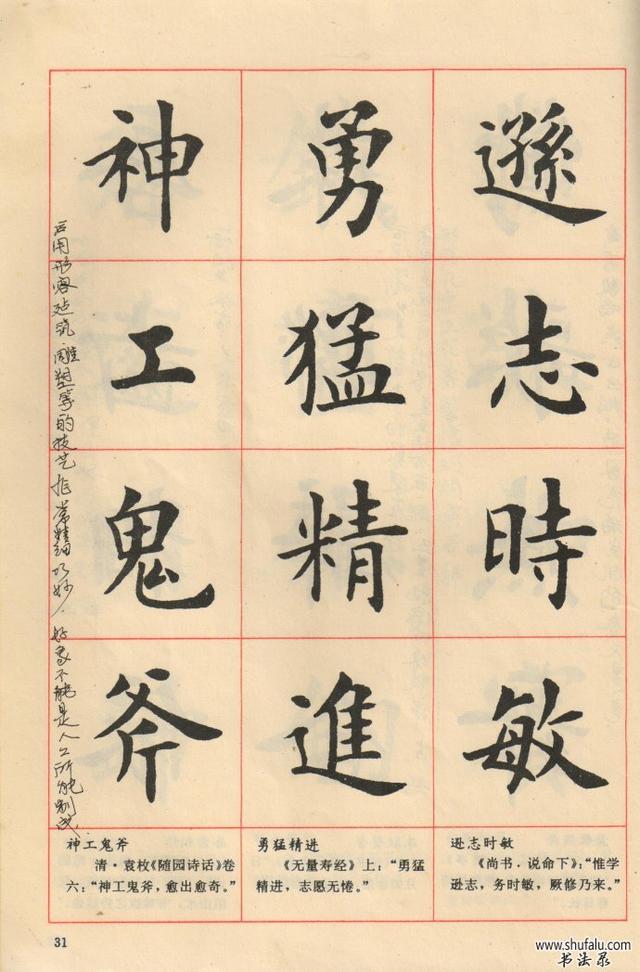 遜志時敏
勇猛精進
神工鬼斧
应用形容建筑雕塑等的技艺非常精细巧妙，好象不能是人工所能制成
逊志时敏
《尚书·说命下》：“惟学
逊志，务时敏，厥修乃来。”
勇猛精进
《无量寿经》上：“勇猛
精进，志愿无惓。”
神工鬼斧
清·袁枚《随园诗话》卷
六：“神工鬼斧，愈出愈奇。”
31
www.shufalu.com
书法录